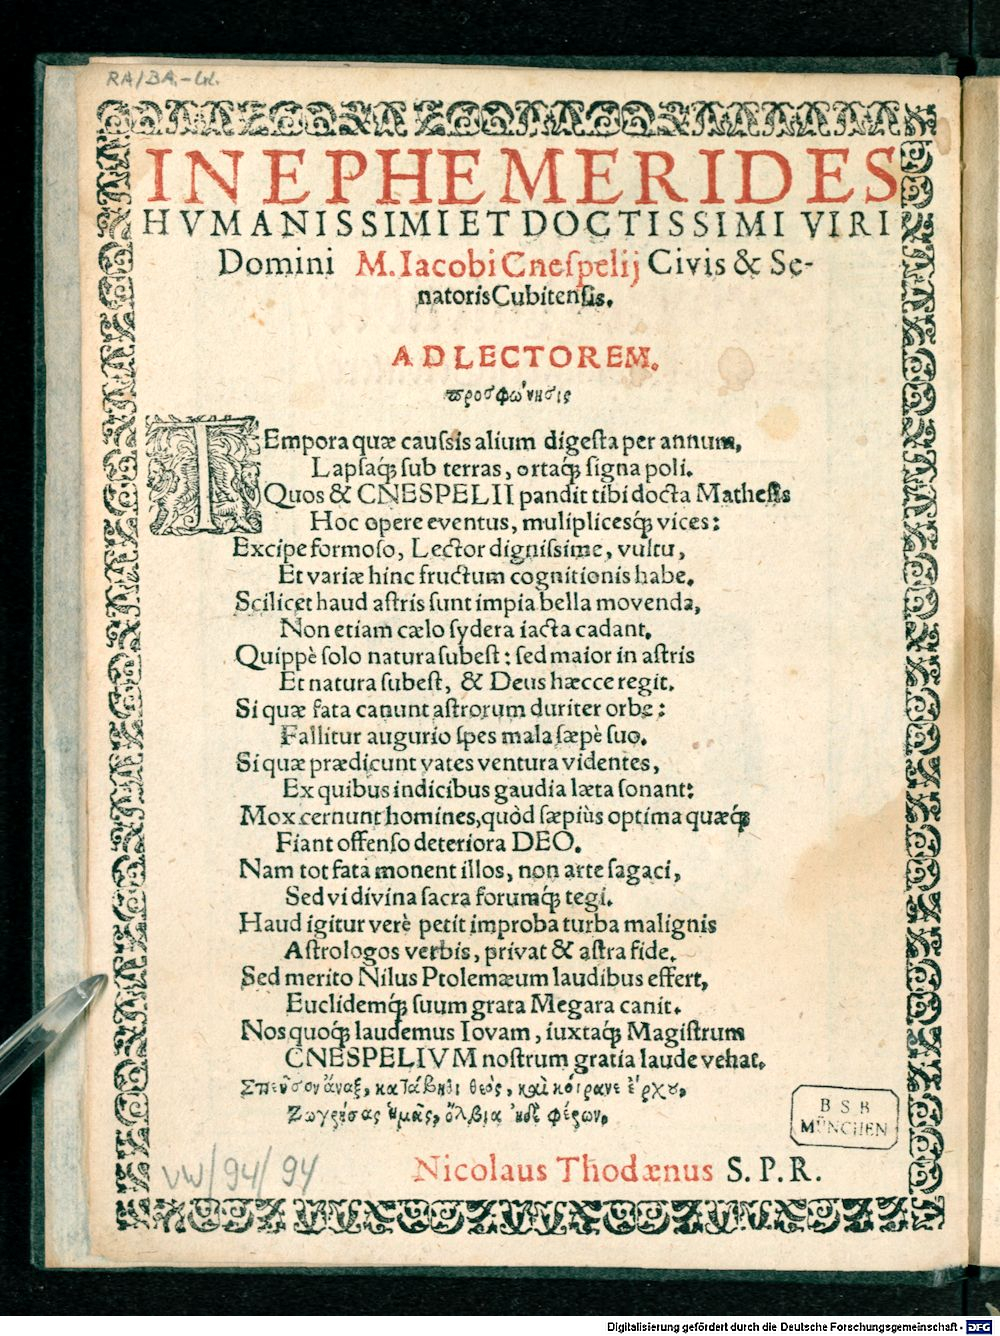 RA/BA.-
IN EPHEMERIDES
HVMANISSIMI ET DOCTISSIMI VIRI
Domini M. Iacobi Cnespelij Civis & Se-
natoris Cubitensis.
AD LECTOREM.
προσφώνησις
TEmpora quæ caussis alium digesta per annum,
Lapsaq́; sub terras, ortaq́; signa poli.
Quos & CNESPELII pandit tibi docta Mathesis
Hoc opere eventus, muliplicesq́; vices:
Excipe formoso, Lector dignissime, vultu,
Et variæ hinc fructum cognitionis habe.
Scilicet haud astris sunt impia bella movenda,
Non etiam cælo sydera iacta cadant.
Quippè solo natura subest: sed maior in astris
Et natura subest, & Deus hæcce regit.
Si quæ fata canunt astrorum duriter orbe:
Fallitur augurio spes mala sæpè suo.
Si quæ prædicunt vates ventura videntes,
Ex quibus indicibus gaudia læta sonant:
Mox cernunt homines, quòd sæpiùs optima quæq́;
Fiant offenso deteriora DEO.
Nam tot fata monent illos, non arte sagaci,
Sed vi divina sacra forumq́; tegi.
Haud igitur verè petit improba turba malignis
Astrologos verbis, privat & astra fide.
Sed merito Nilus Ptolemæum laudibus effert,
Euclidemq́; suum grata Megara canit.
Nos quoq́; laudemus Iovam, iuxtaq́; Magistrum
CNESPELIVM nostrum gratia laude vehat.
Σπεῦσον ἄναξ, κατάβηθι θεὸς, καὶ κοίρανε ἔρχου,
Ζωγρήσας ἡμᾶς, ὄλβια ἠδὲ φέρων.
Nicolaus Thodænus S. P. R.
BSB
MÜNCHEN
VW/94/94
Digitalisierung gefördert durch die Deutsche Forschungsgemeinschaft - DFG